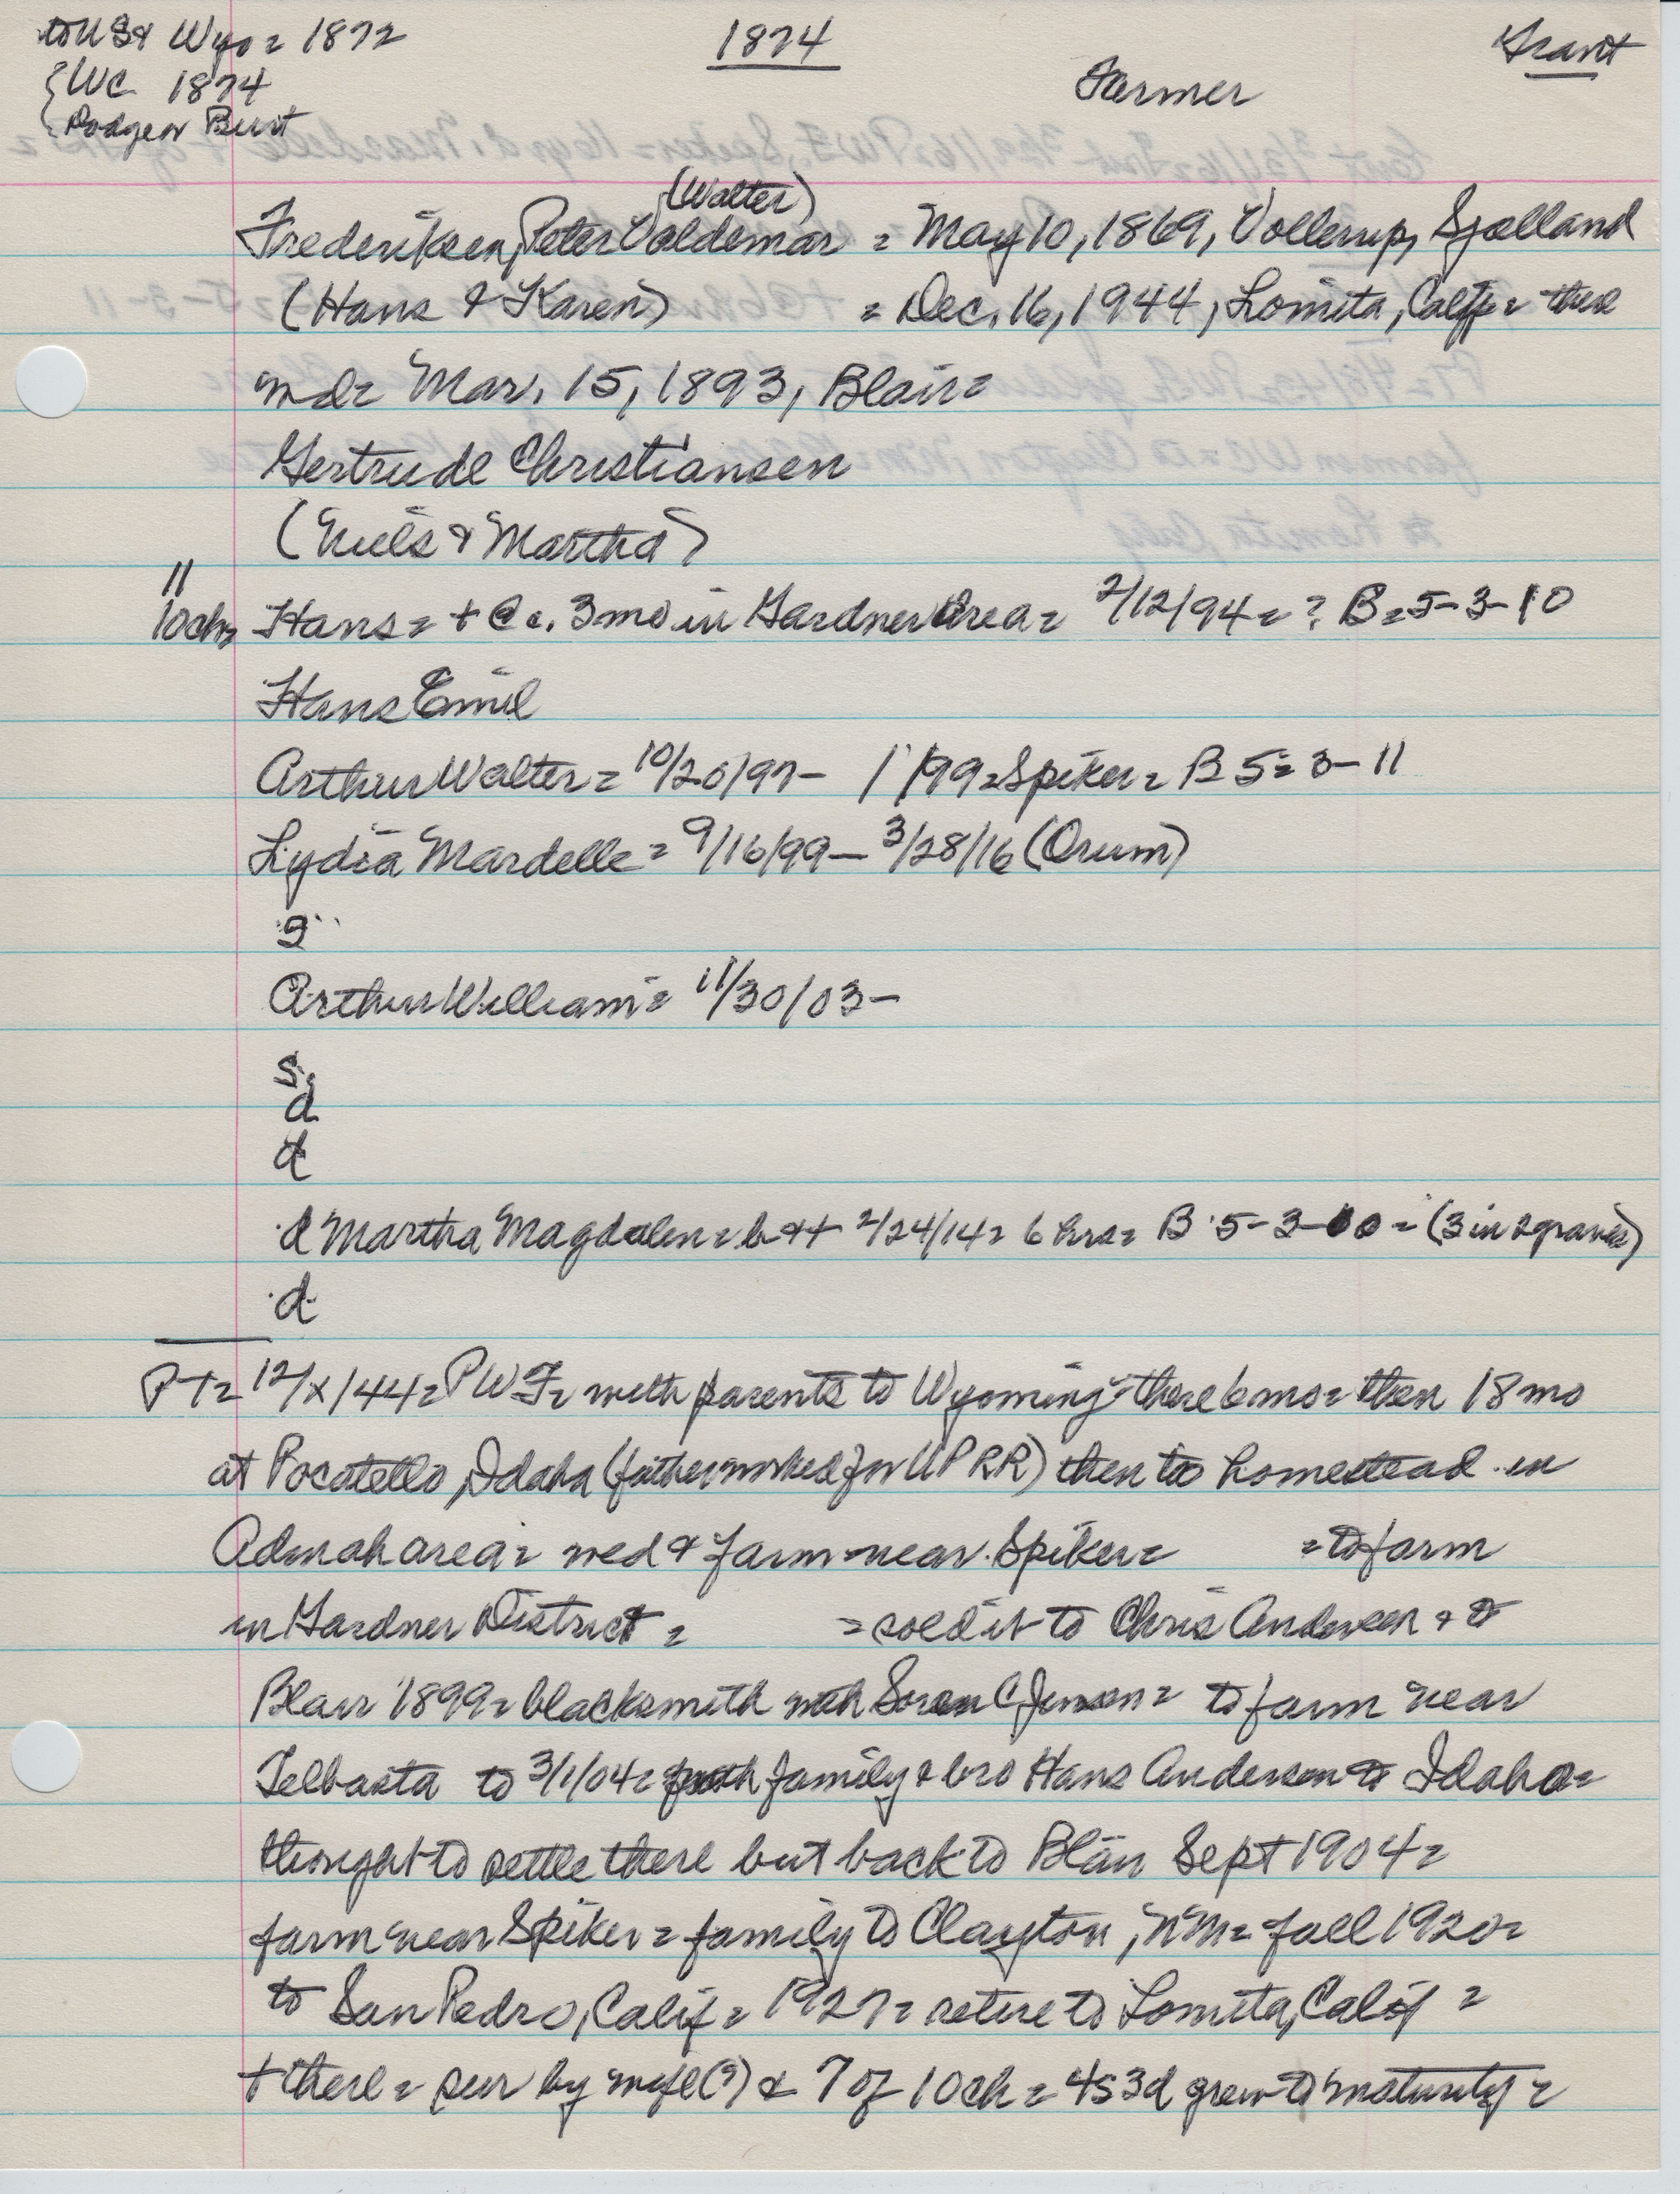 to US & Wyo = 1872
1874
Grant
{WC 1874
Farmer
Burt
(Walter)
Frederiksen, Peter Valdemar = May 10, 1869, Vollerup, Sjælland
(Hans & Karen) = Dec. 16, 1944, Lomita, Calif = there
md = Mar. 15, 1893, Blair =
Gertrude Christiansen
(Niels & Martha)
11
10ch = Hans = + @ c. 3 mo in Gardner area = 2/12/94 = ? B = 5-3-10
Hans Emil
Arthur Walter = 10/20/97 - 1/ /99 = Spiker = B 5 = 3-11
Lydia Mardelle = 9/16/99 - 3/28/16 (Orum)
Arthur William = 11/30/03 -
s.
d
d
d Martha Magdalen = b & + 2/24/14 = 6 hrs = B 5-3-10 = (3 in 2 graves)
d
PT = 12/x/44 = PWF = with parents to Wyoming - there 6 mo = then 18 mo
at Pocatello, Idaho (father worked for UPRR) then to homestead in
Admah area = wed & farm near Spiker = = to farm
in Gardner District = = sold it to Chris Andersen & to
Blair 1899 = blacksmith with Soren C Jensen = to farm near
Telbasta to 3/1/04 = family & bro Hans Andersen to Idaho =
thought to settle there but back to Blair Sept 1904 =
farm near Spiker = family to Clayton, NM = fall 1920 =
to San Pedro, Calif = 1927 = retire to Lomita, Calif =
+ there = sur by wife (?) & 7 of 10 ch = 4s 3d grew to maturity =